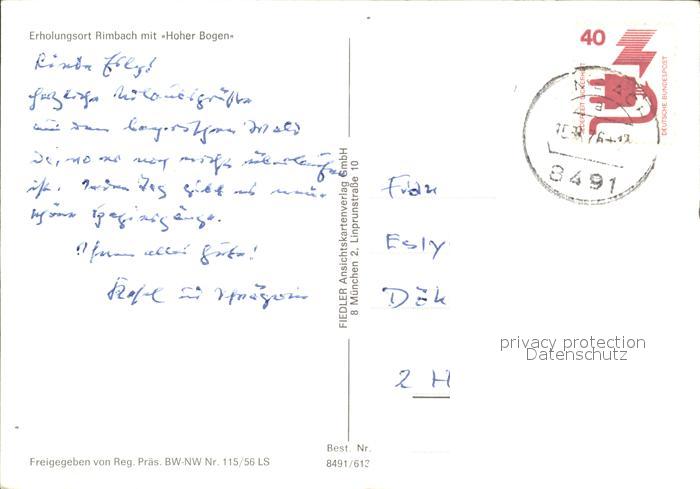 Erholungsort Rimbach mit »Hoher Bogen«
herzliche Urlaubsgrüße
aus dem bayrischen Wald
da, wo es noch nicht überlaufen
ist. Jeden Tag gibt es neue
schöne Spaziergänge.
Ihnen alles Gute!
FIEDLER Ansichtskartenverlag GmbH
8 München 2, Linprunstraße 10
40
JEDERZEIT SICHERHEIT
DEUTSCHE BUNDESPOST
8491
Frau
Dök
2 H
privacy protection
Datenschutz
Freigegeben von Reg. Präs. BW-NW Nr. 115/56 LS
Best. Nr.
8491/613